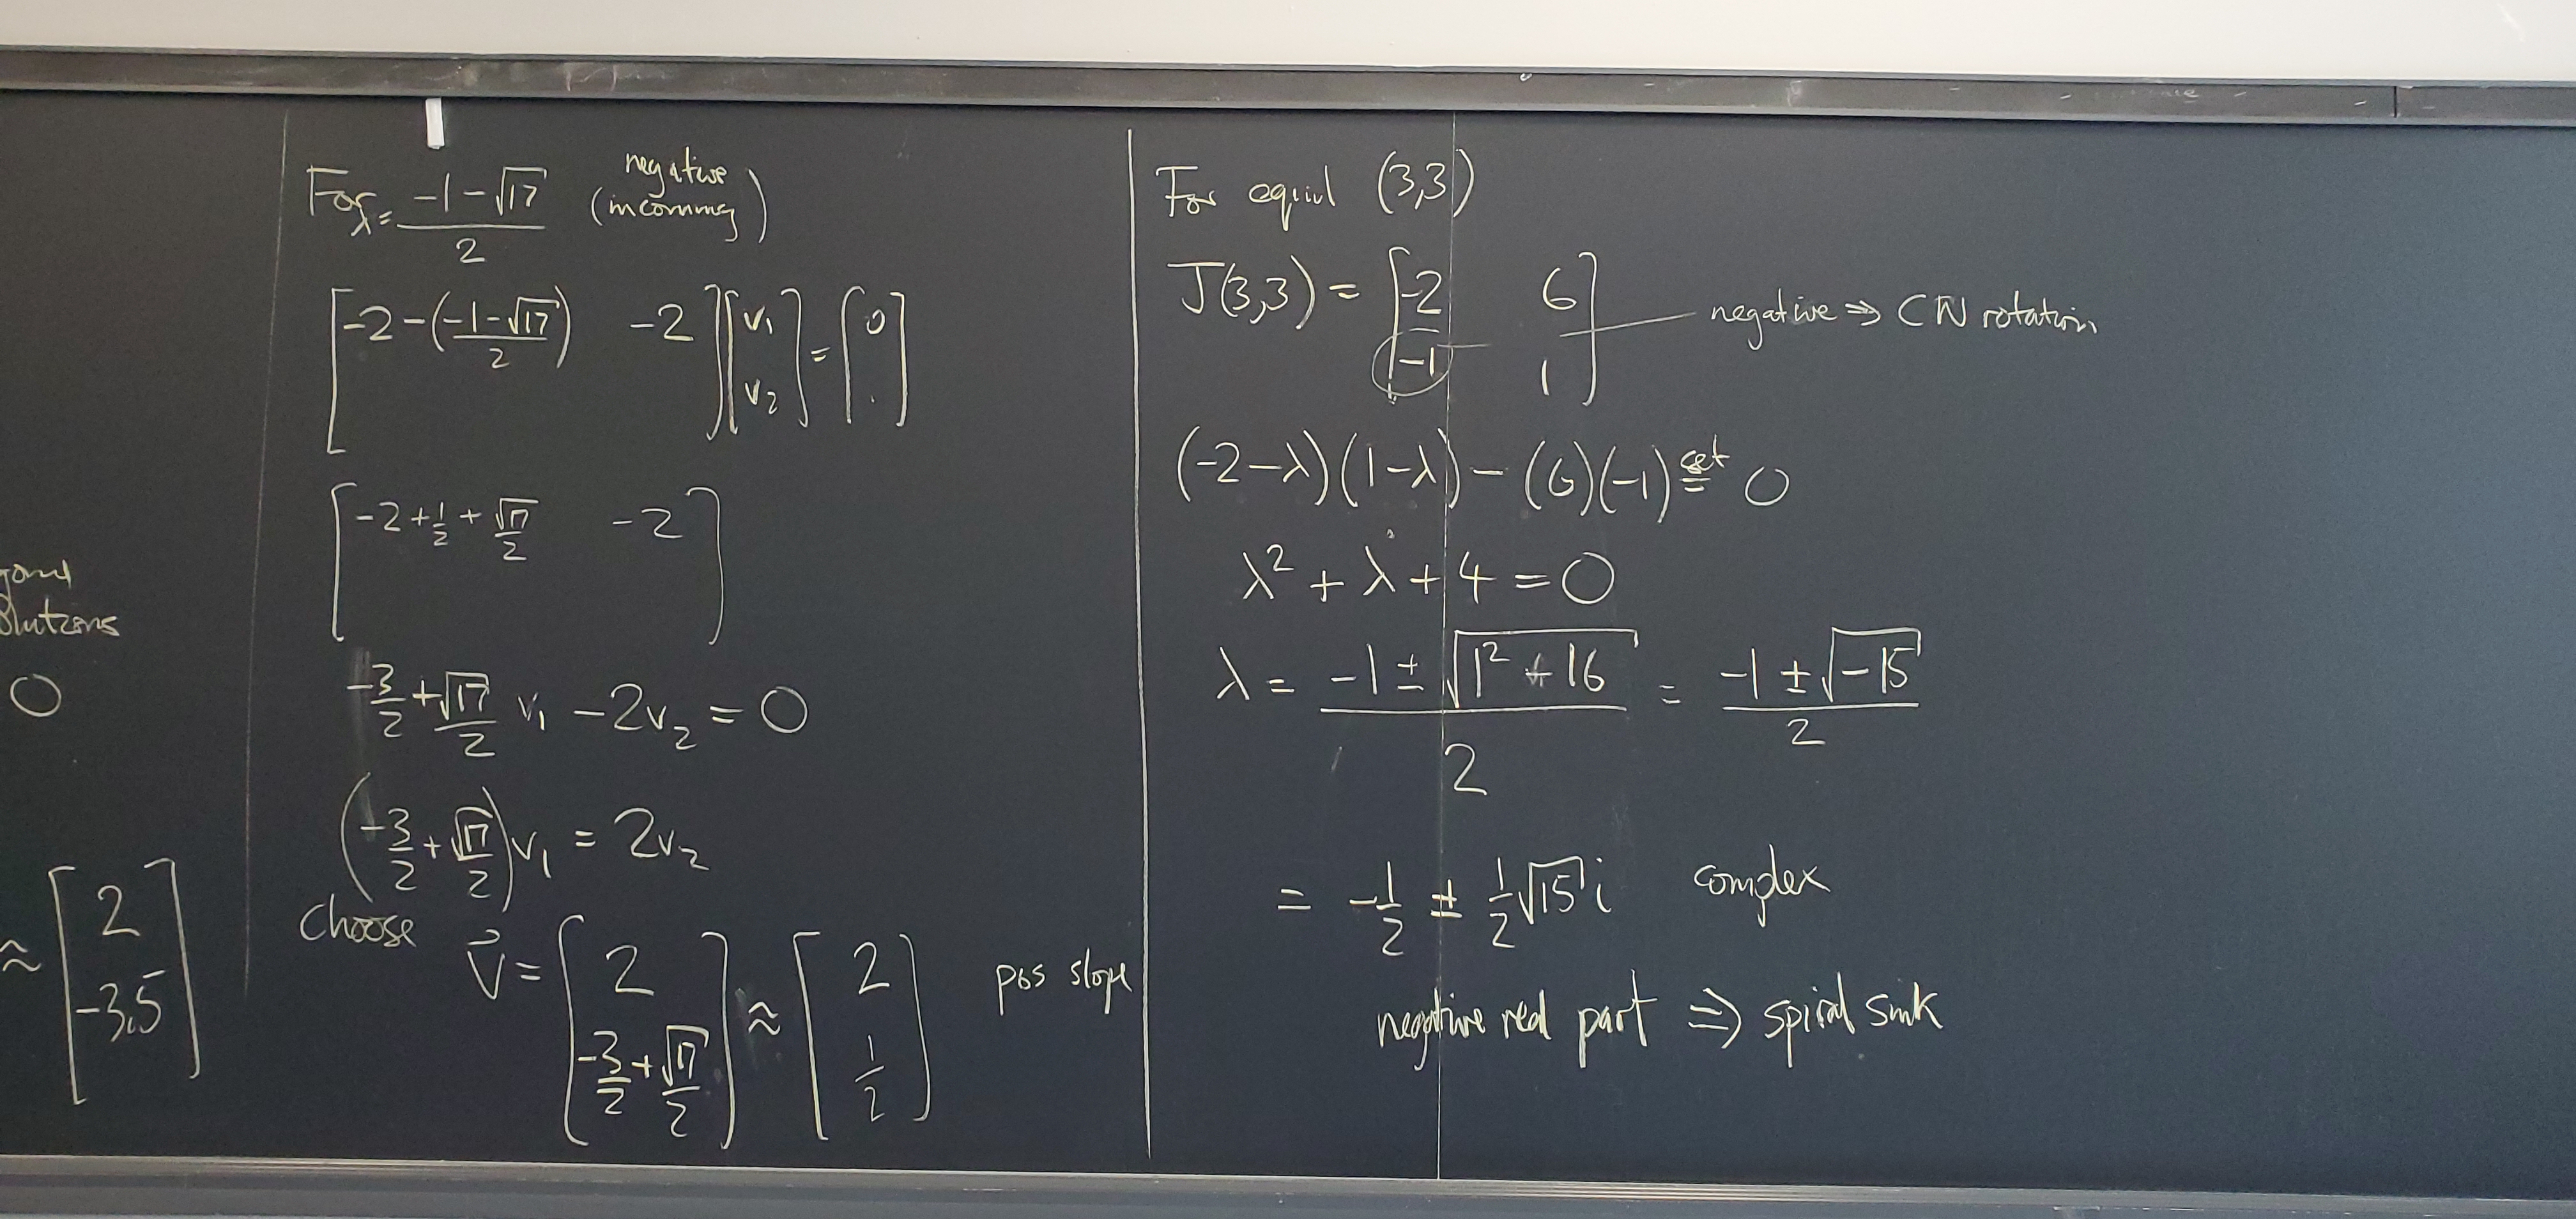 gonal
olutions
0
≈ [2
-3.5]
For λ = (-1-√17)/2 negative (incoming)
[-2-((-1-√17)/2) -2] [v₁ v₂] = [0 .]
[-2+1/2+√17/2 -2]
-3/2+√17/2 v₁ -2v₂ = 0
(-3/2+√17/2)v₁ = 2v₂
Choose
v⃗ = [2, -3/2+√17/2] ≈ [2, 1/2] pos slope
For equil (3,3)
J(3,3) = [-2 6
-1 1] negative ⇒ CW rotation
(-2-λ)(1-λ)-(6)(-1) set= 0
λ²+λ+4=0
λ = (-1±√(1²+16))/2 = (-1±√-15)/2
= -1/2 ± 1/2√15 i complex
negative real part ⇒ spiral sink